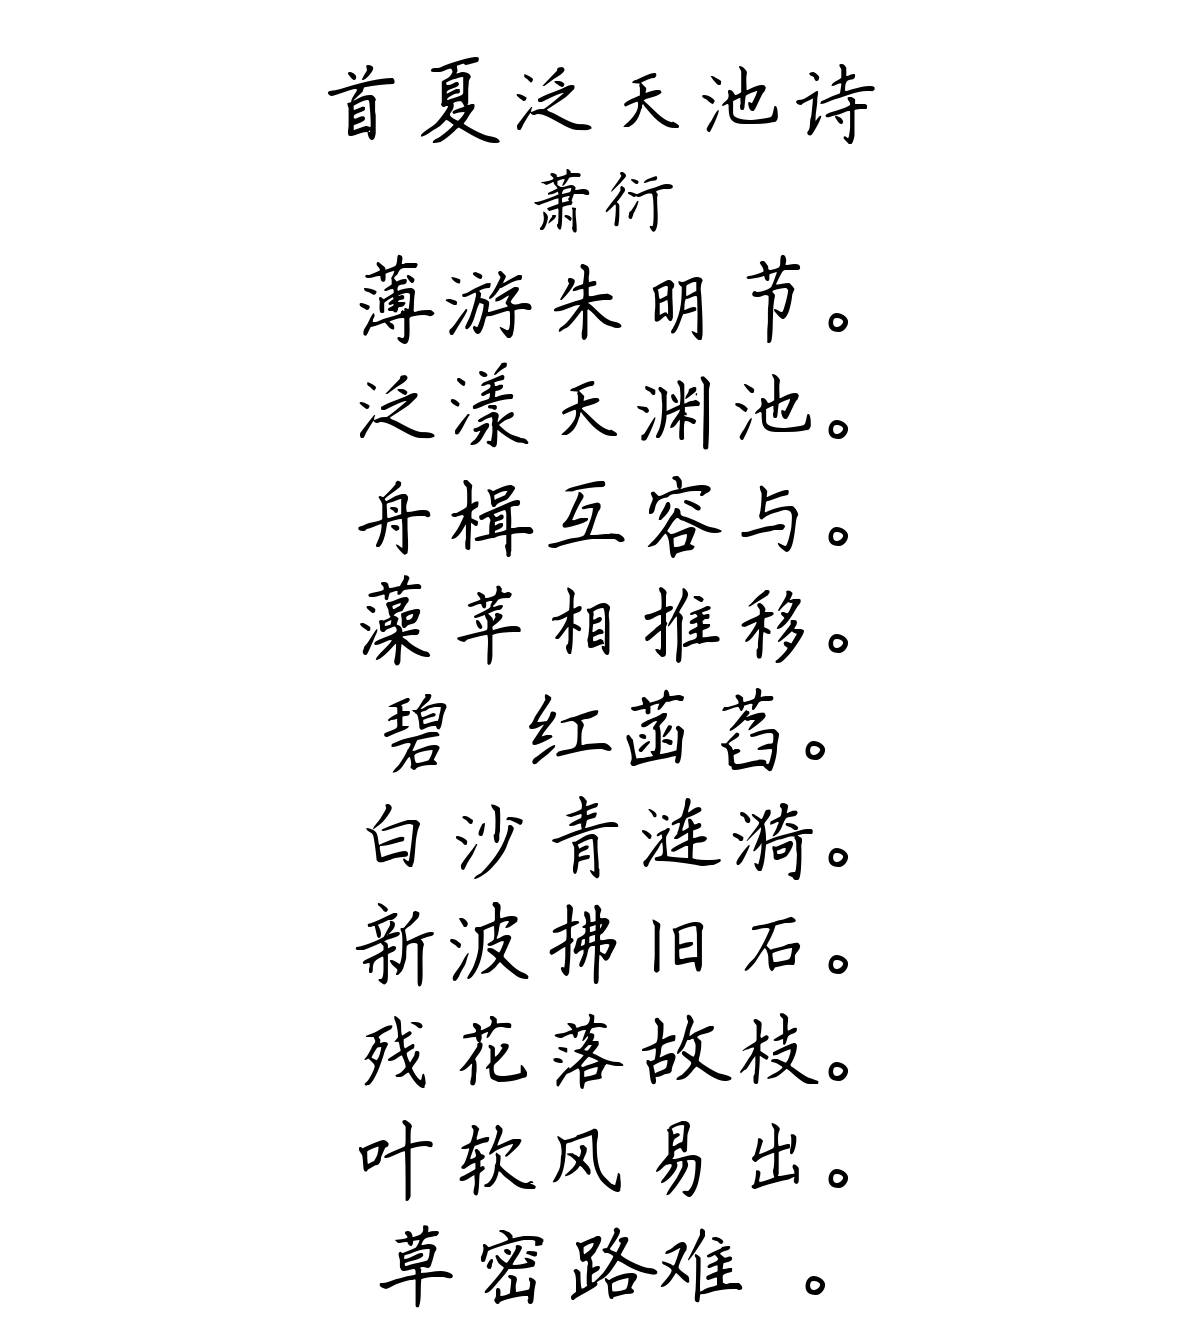 首夏泛天池诗
萧衍
薄游朱明节。
泛漾天渊池。
舟楫互容与。
藻苹相推移。
碧 红菡萏。
白沙青涟漪。
新波拂旧石。
残花落故枝。
叶软风易出。
草密路难 。